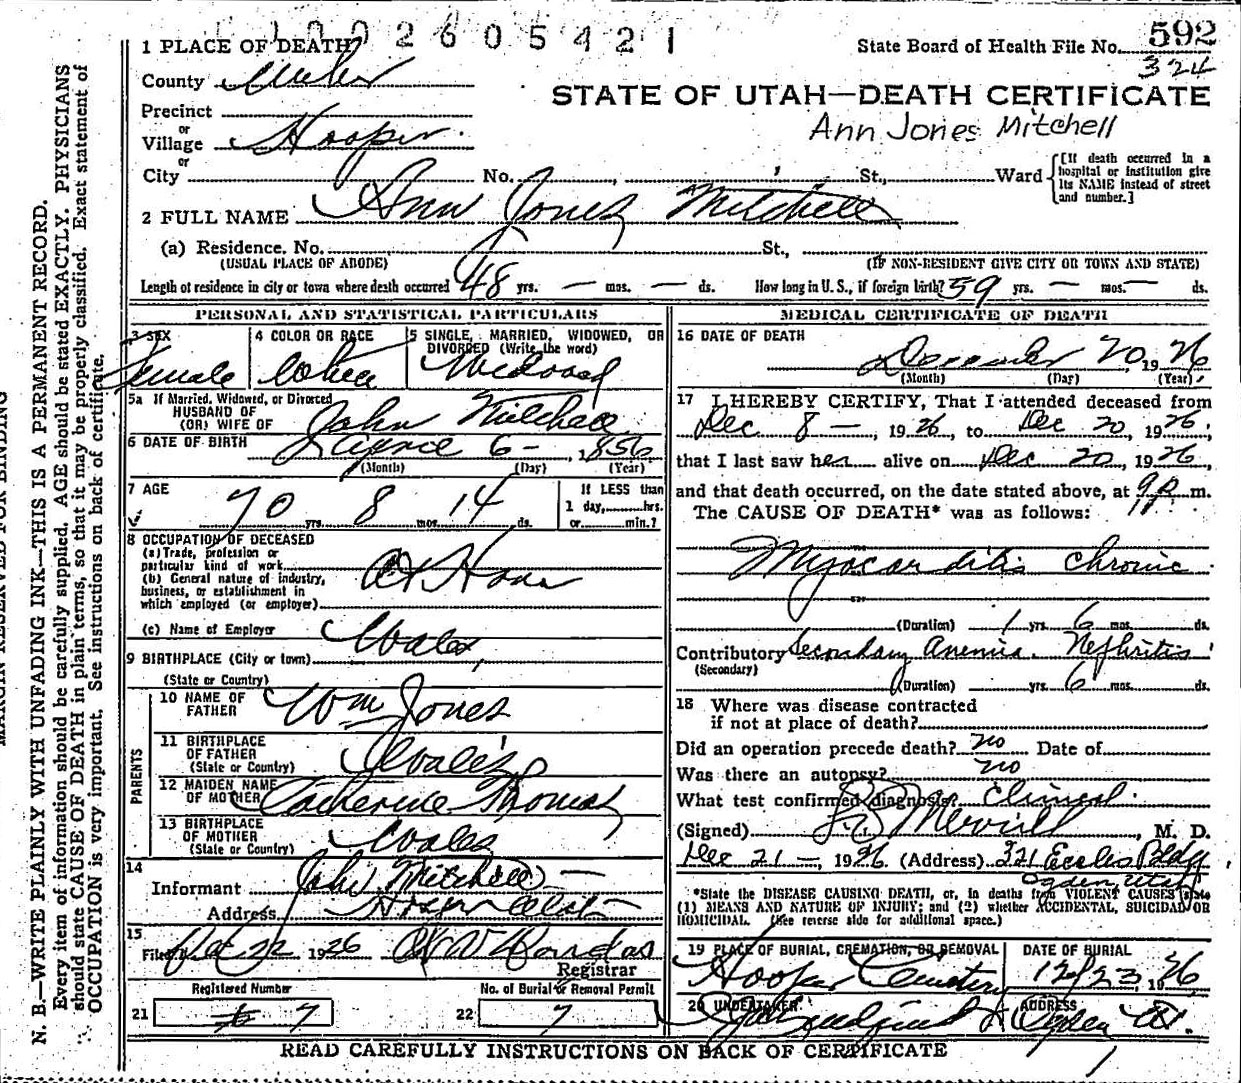 1002605421
State Board of Health File No. 592
324
STATE OF UTAH—DEATH CERTIFICATE
Ann Jones Mitchell
1 PLACE OF DEATH
County Weber
Precinct
or
Village Hooper
or
City No. , St., Ward
[If death occurred in a hospital or institution give its NAME instead of street and number.]
2 FULL NAME Ann Jones Mitchell
(a) Residence. No. St.,
(USUAL PLACE OF ABODE) (IF NON-RESIDENT GIVE CITY OR TOWN AND STATE)
Length of residence in city or town where death occurred 48 yrs. — mos. — ds. How long in U. S., if foreign birth? 59 yrs. — mos. — ds.
PERSONAL AND STATISTICAL PARTICULARS
3 SEX
Female
4 COLOR OR RACE
White
5 SINGLE, MARRIED, WIDOWED, OR
DIVORCED (Write the word)
Widowed
5a If Married, Widowed, or Divorced
HUSBAND OF
(OR) WIFE OF John Mitchell
6 DATE OF BIRTH April 6 - , 1856
(Month) (Day) (Year)
7 AGE
70 yrs. 8 mos. 14 ds.
If LESS than
1 day, hrs.
or min.?
8 OCCUPATION OF DECEASED
(a) Trade, profession or
particular kind of work At Home
(b) General nature of industry,
business, or establishment in
which employed (or employer)
(c) Name of Employer
9 BIRTHPLACE (City or town) Wales,
(State or Country)
PARENTS
10 NAME OF
FATHER Wm Jones
11 BIRTHPLACE
OF FATHER
(State or Country) Wales
12 MAIDEN NAME
OF MOTHER Catherine Thomas
13 BIRTHPLACE
OF MOTHER
(State or Country) Wales
14
Informant John Mitchell —
Address Hooper Utah
15
Filed 22 1926
Registrar
Registered Number No. of Burial or Removal Permit
21 7 22 7
MEDICAL CERTIFICATE OF DEATH
16 DATE OF DEATH
December 20, 1926
(Month) (Day) (Year)
17 I HEREBY CERTIFY, That I attended deceased from
Dec 8 — , 1926, to Dec 20, 1926,
that I last saw her alive on Dec 20, 1926,
and that death occurred, on the date stated above, at 9 p m.
The CAUSE OF DEATH* was as follows:
Myocarditis chronic
(Duration) 1 yrs. 6 mos. ds.
Contributory Secondary Anemia. Nephritis
(Secondary)
(Duration) yrs. 6 mos. ds.
18 Where was disease contracted
if not at place of death?
Did an operation precede death? no Date of
Was there an autopsy? no
What test confirmed diagnosis? Clinical.
(Signed) Merrill, M. D.
Dec 21 —, 1926 (Address) 321 Eccles Bldg
Ogden, Utah
*State the DISEASE CAUSING DEATH, or, in deaths from VIOLENT CAUSES state
(1) MEANS AND NATURE OF INJURY; and (2) whether ACCIDENTAL, SUICIDAL OR
HOMICIDAL. (See reverse side for additional space.)
19 PLACE OF BURIAL, CREMATION, OR REMOVAL
Hooper Cemetery
DATE OF BURIAL
12/23, 1926
20 UNDERTAKER
ADDRESS
Ogden
READ CAREFULLY INSTRUCTIONS ON BACK OF CERTIFICATE
MARGIN RESERVED FOR BINDING
N. B.—WRITE PLAINLY WITH UNFADING INK—THIS IS A PERMANENT RECORD.
Every item of information should be carefully supplied. AGE should be stated EXACTLY. PHYSICIANS
should state CAUSE OF DEATH in plain terms, so that it may be properly classified. Exact statement of
OCCUPATION is very important. See instructions on back of certificate.